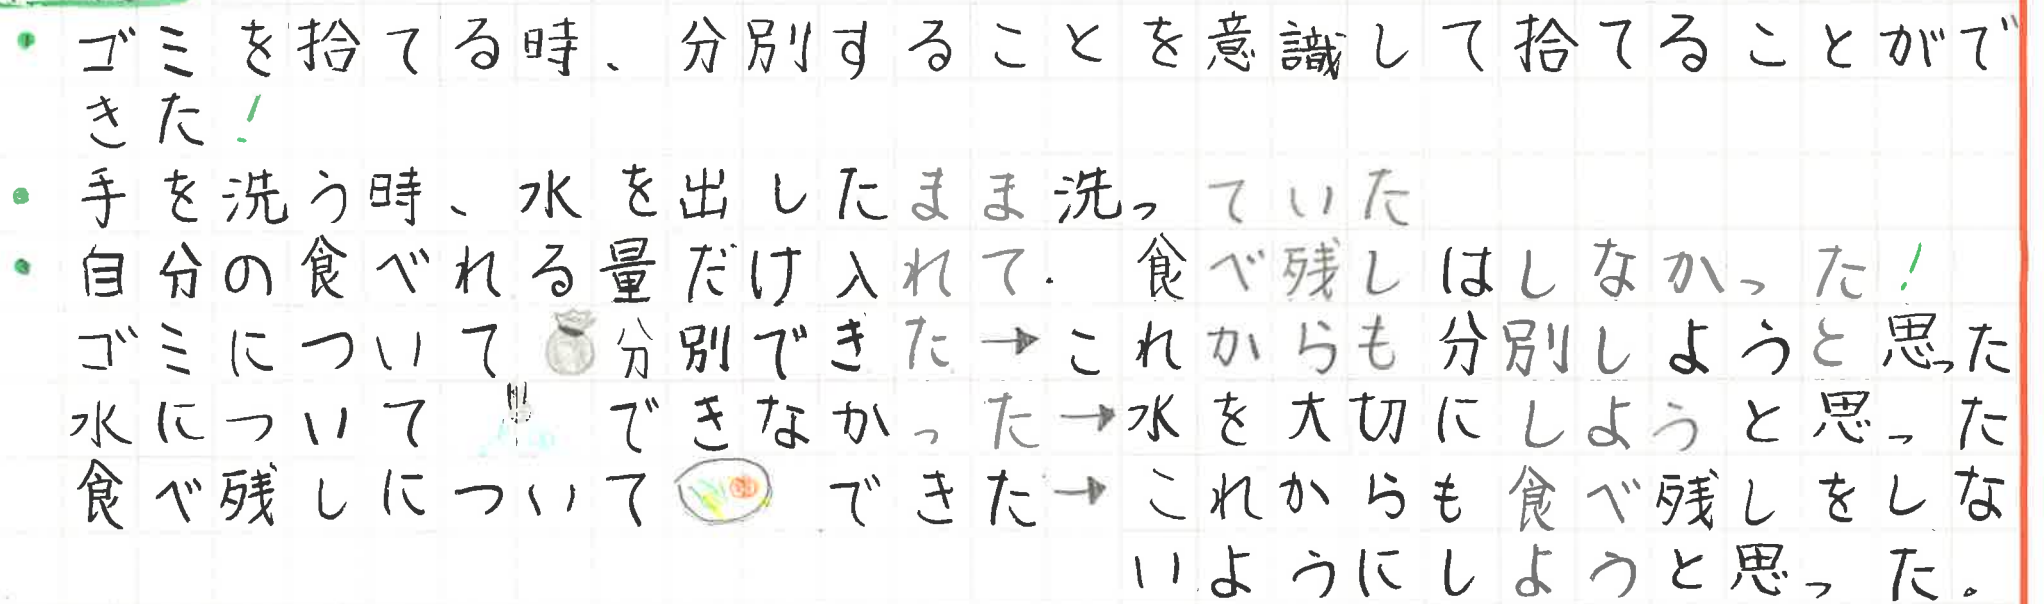 ・ゴミを捨てる時、分別することを意識して捨てることがで
きた!
・手を洗う時、水を出したまま洗っていた
・自分の食べれる量だけ入れて、食べ残しはしなかった!
ゴミについて 分別できた→これからも分別しようと思った
水について できなかった→水を大切にしようと思った
食べ残しについて できた→これからも食べ残しをしな
いようにしようと思った。